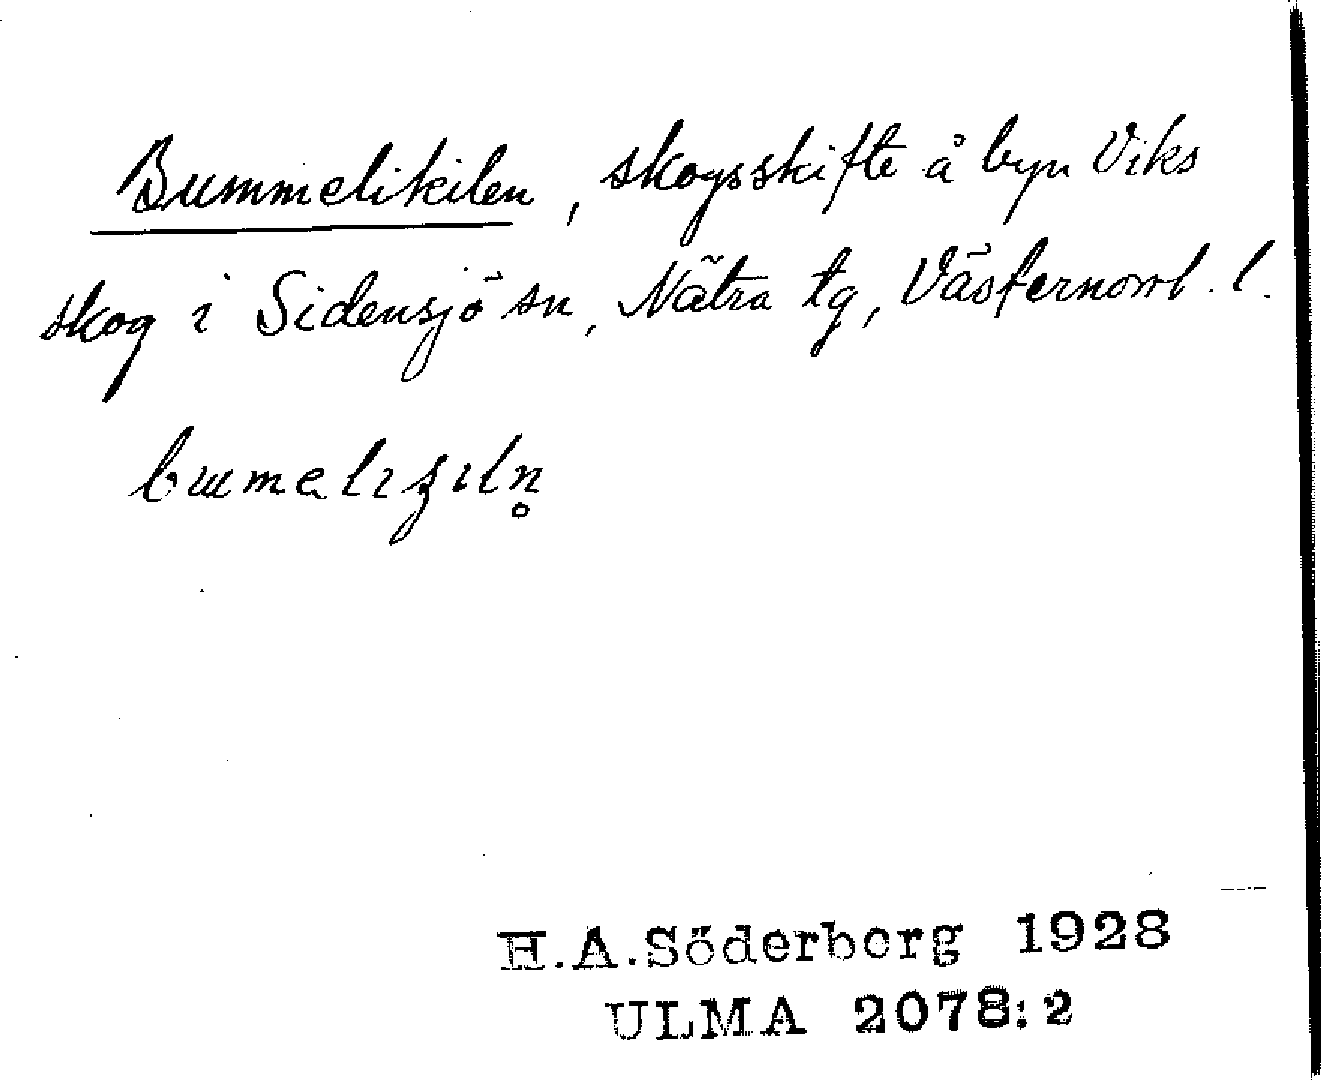 Bummelikilen, skogsskifte å byn Viks
skog i Sidensjö sn, Nätra tg, Västernorrl. l.
H.A.Söderborg 1928
ULMA 2078:2